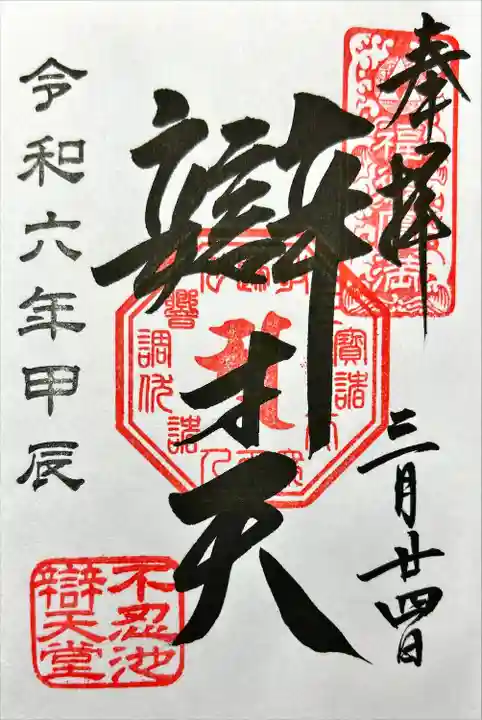 奉拝
三月廿四日
辯才天
令和六年甲辰
不忍池
辯天堂